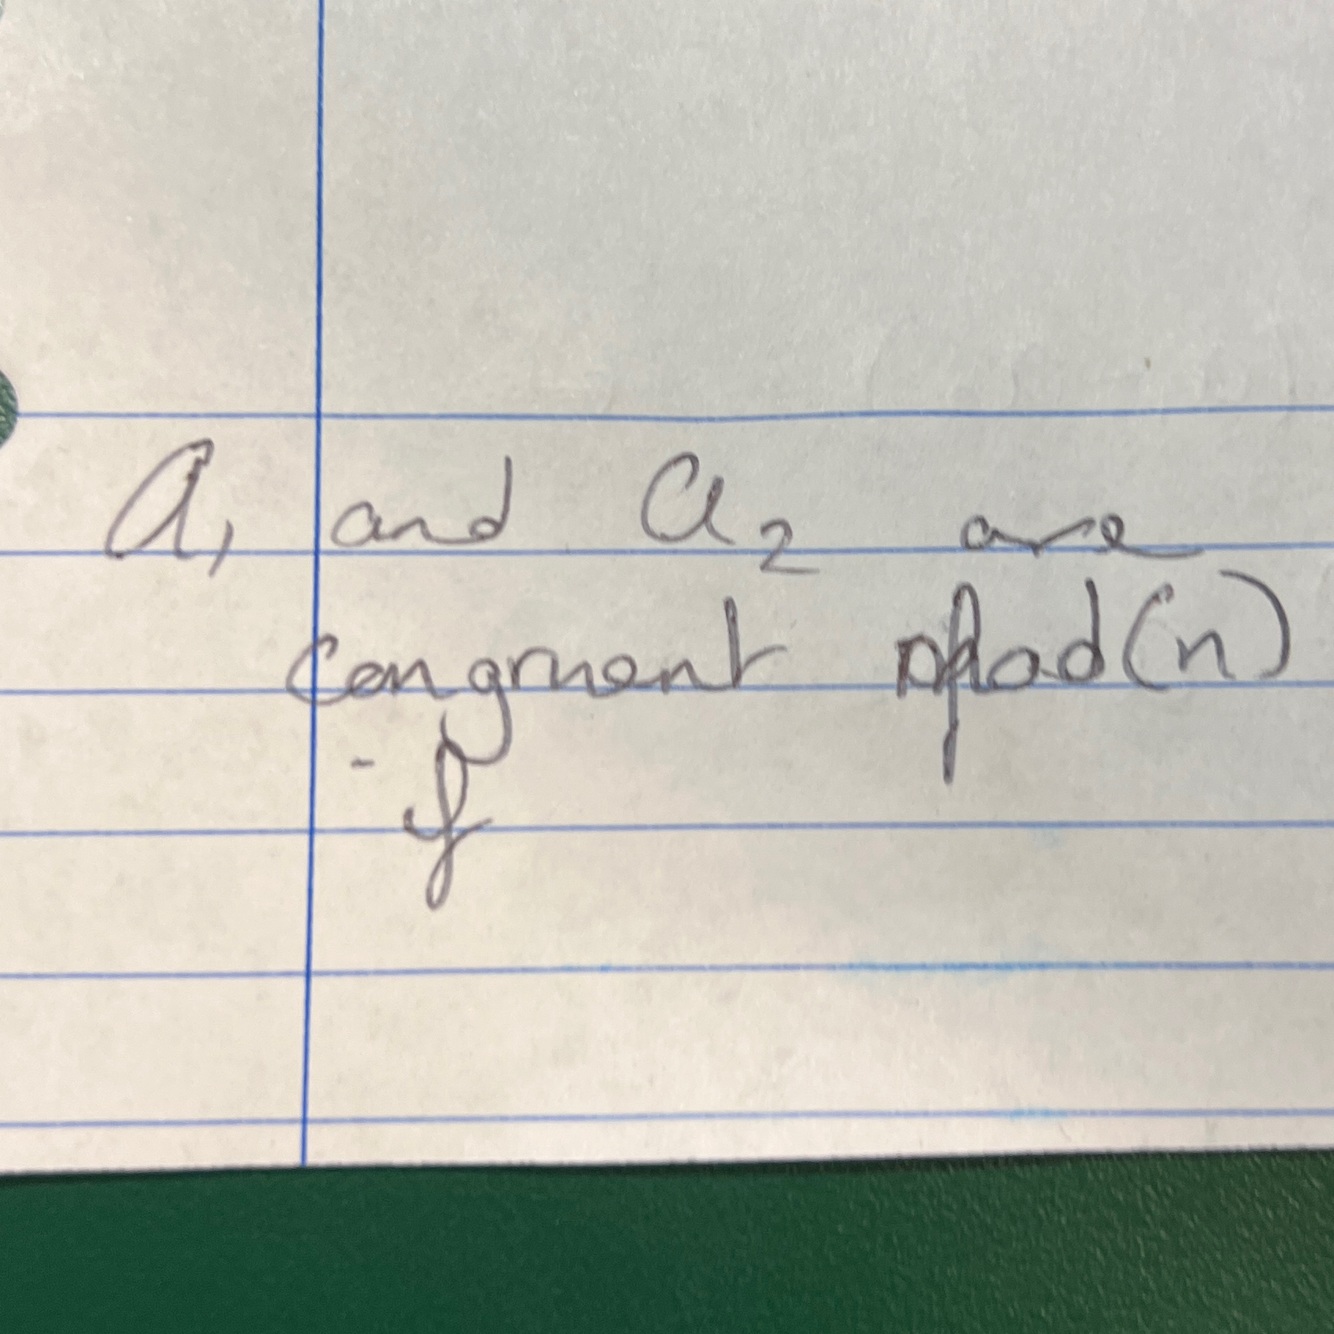 a₁ and a₂ are
congruent mod(n)
if